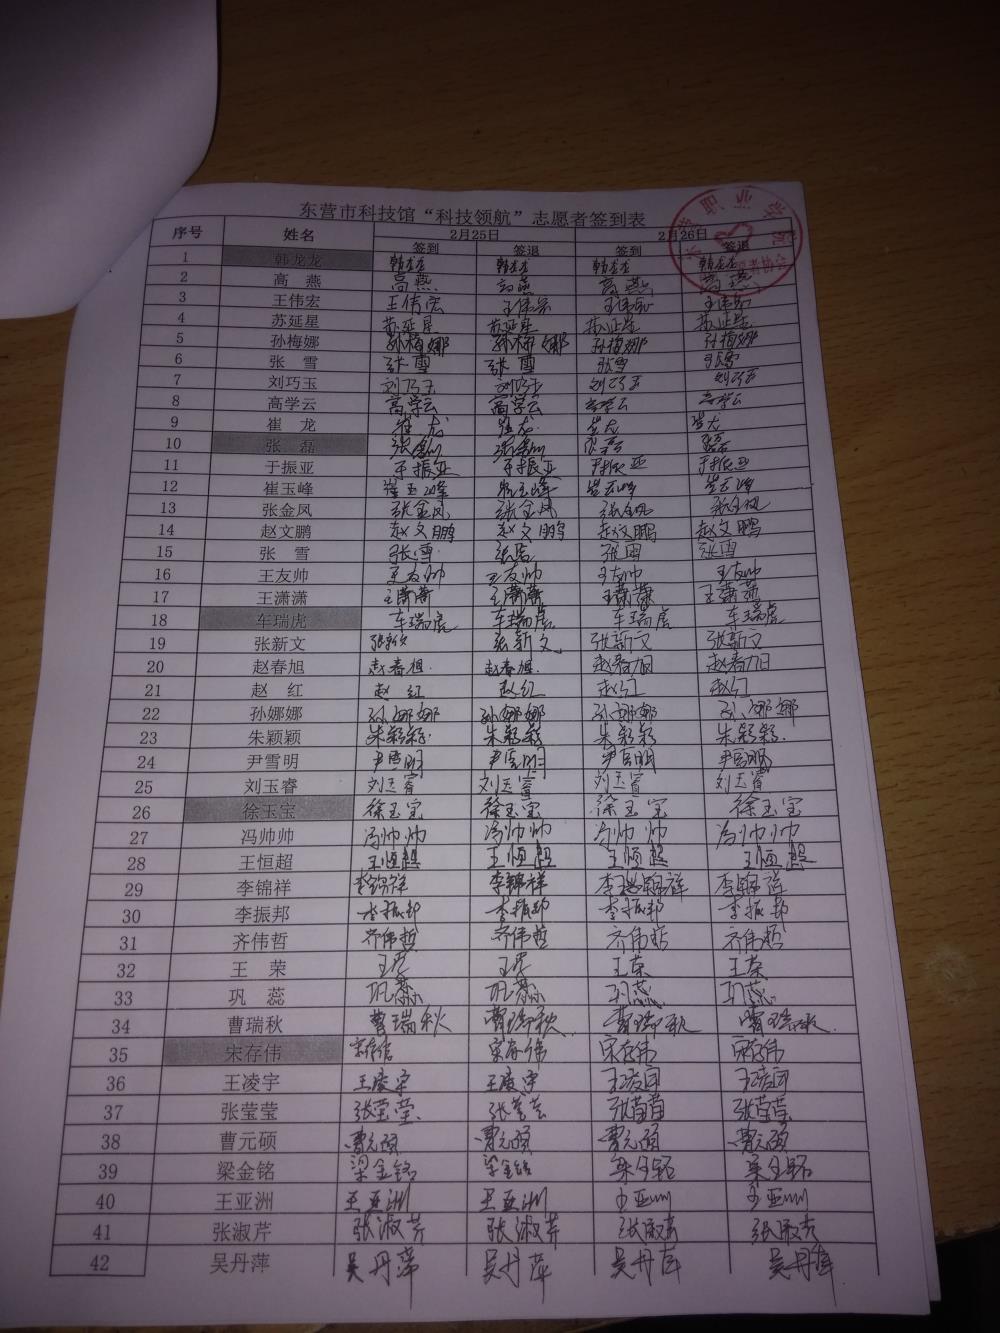 东营市科技馆“科技领航”志愿者签到表
序号 姓名 2月25日 2月26日
签到 签退 签到 签退
1 韩龙龙 韩龙龙 韩龙龙 韩龙龙 韩龙龙
2 高 燕 高燕 高燕 高燕 高燕
3 王伟宏 王伟宏 王伟宏 王伟宏 王伟宏
4 苏延星 苏延星 苏延星 苏延星 苏延星
5 孙梅娜 孙梅娜 孙梅娜 孙梅娜 孙梅娜
6 张 雪 张雪 张雪 张雪 张雪
7 刘巧玉 刘巧玉 刘巧玉 刘巧玉 刘巧玉
8 高学云 高学云 高学云 高学云 高学云
9 崔 龙 崔龙 崔龙 崔龙 崔龙
10 张 磊
11 于振亚 于振亚 于振亚 于振亚 于振亚
12 崔玉峰 崔玉峰 崔玉峰 崔玉峰 崔玉峰
13 张金凤 张金凤 张金凤 张金凤 张金凤
14 赵文鹏 赵文鹏 赵文鹏 赵文鹏 赵文鹏
15 张 雪 张雪 张雪 张雪 张雪
16 王友帅 王友帅 王友帅 王友帅 王友帅
17 王潇潇 王潇潇 王潇潇 王潇潇 王潇潇
18 车瑞虎 车瑞虎 车瑞虎 车瑞虎 车瑞虎
19 张新文 张新文 张新文 张新文 张新文
20 赵春旭 赵春旭 赵春旭 赵春旭 赵春旭
21 赵 红 赵红 赵红 赵红 赵红
22 孙娜娜 孙娜娜 孙娜娜 孙娜娜 孙娜娜
23 朱颖颖 朱颖颖 朱颖颖 朱颖颖 朱颖颖
24 尹雪明 尹雪明 尹雪明 尹雪明 尹雪明
25 刘玉睿 刘玉睿 刘玉睿 刘玉睿 刘玉睿
26 徐玉宝 徐玉宝 徐玉宝 徐玉宝 徐玉宝
27 冯帅帅 冯帅帅 冯帅帅 冯帅帅 冯帅帅
28 王恒超 王恒超 王恒超 王恒超 王恒超
29 李锦祥 李锦祥 李锦祥 李锦祥 李锦祥
30 李振邦 李振邦 李振邦 李振邦 李振邦
31 齐伟哲 齐伟哲 齐伟哲 齐伟哲 齐伟哲
32 王 荣 王荣 王荣 王荣 王荣
33 巩 蕊 巩蕊 巩蕊 巩蕊 巩蕊
34 曹瑞秋 曹瑞秋 曹瑞秋 曹瑞秋 曹瑞秋
35 宋存伟 宋存伟 宋存伟 宋存伟 宋存伟
36 王凌宇 王凌宇 王凌宇 王凌宇 王凌宇
37 张莹莹 张莹莹 张莹莹 张莹莹 张莹莹
38 曹元硕 曹元硕 曹元硕 曹元硕 曹元硕
39 梁金铭 梁金铭 梁金铭 梁金铭 梁金铭
40 王亚洲 王亚洲 王亚洲 王亚洲 王亚洲
41 张淑芹 张淑芹 张淑芹 张淑芹 张淑芹
42 吴丹萍 吴丹萍 吴丹萍 吴丹萍 吴丹萍